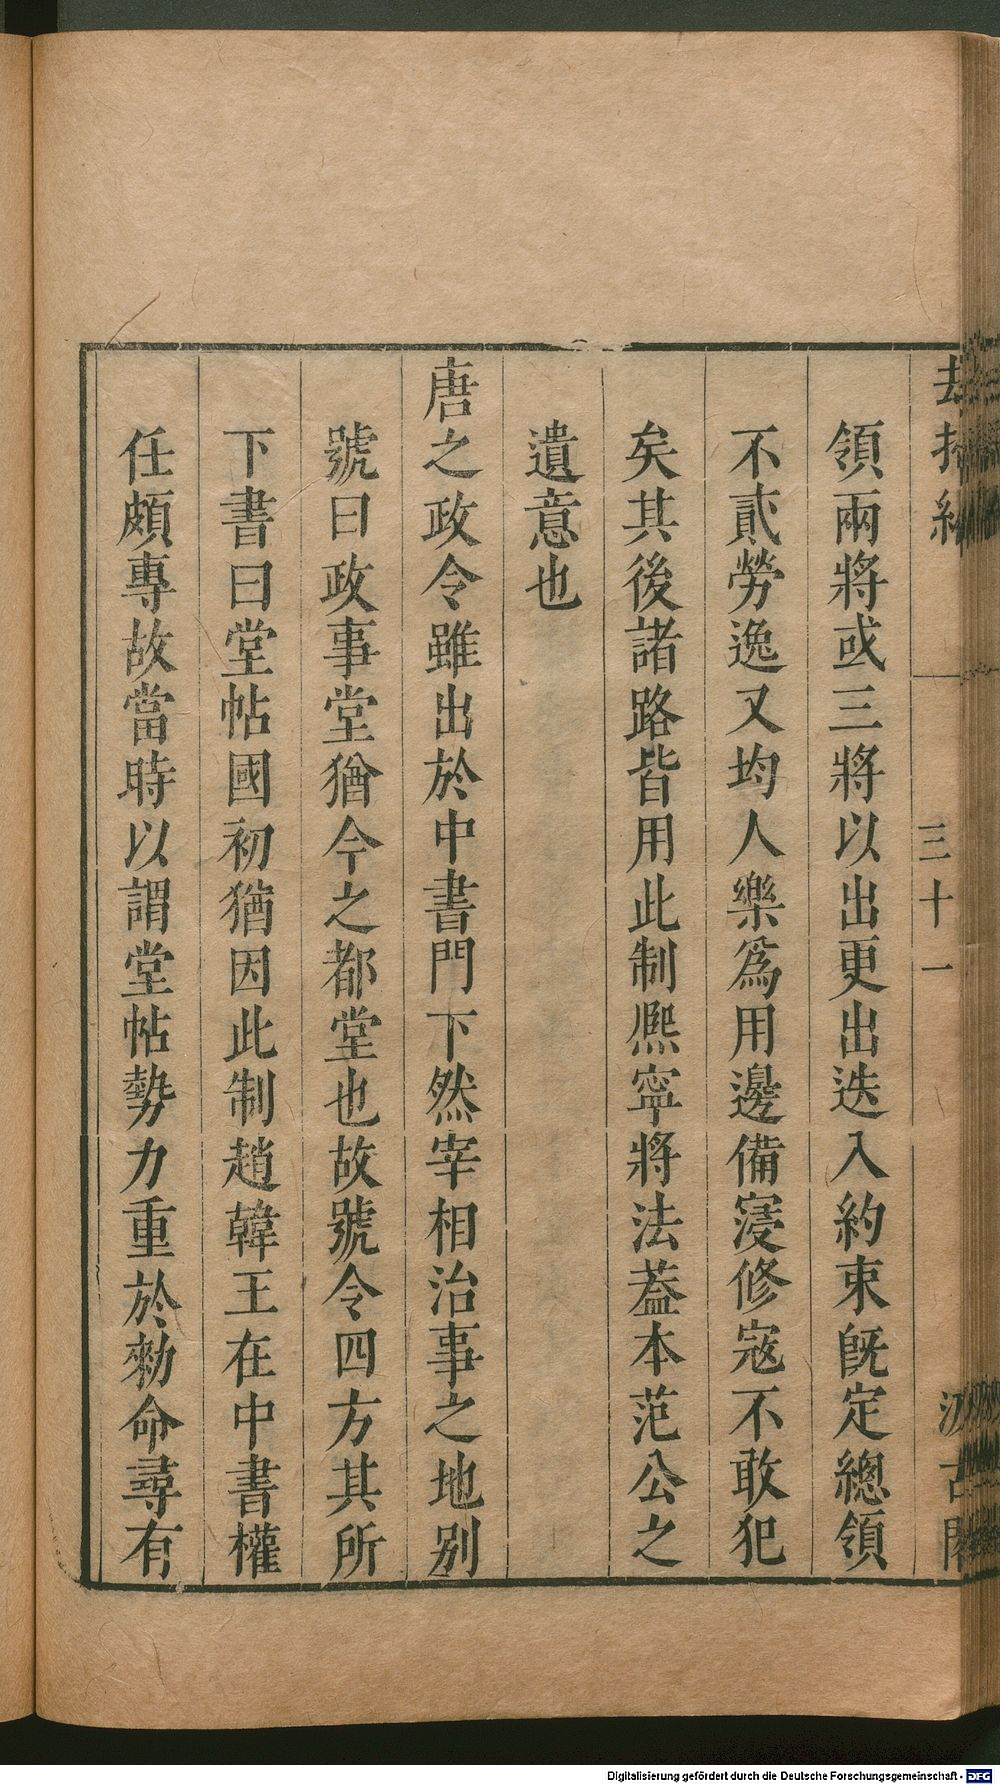 領兩將或三將以出更出迭入約束旣定總領
不貳勞逸又均人樂爲用邊備寖修寇不敢犯
矣其後諸路皆用此制熈寧將法葢本范公之
遺意也
唐之政令雖出於中書門下然宰相治事之地別
號曰政事堂猶今之都堂也故號令四方其所
下書曰堂帖國初猶因此制趙韓王在中書權
任頗專故當時以謂堂帖勢力重於勑命尋有
三十一
Digitalisierung gefördert durch die Deutsche Forschungsgemeinschaft - DFG